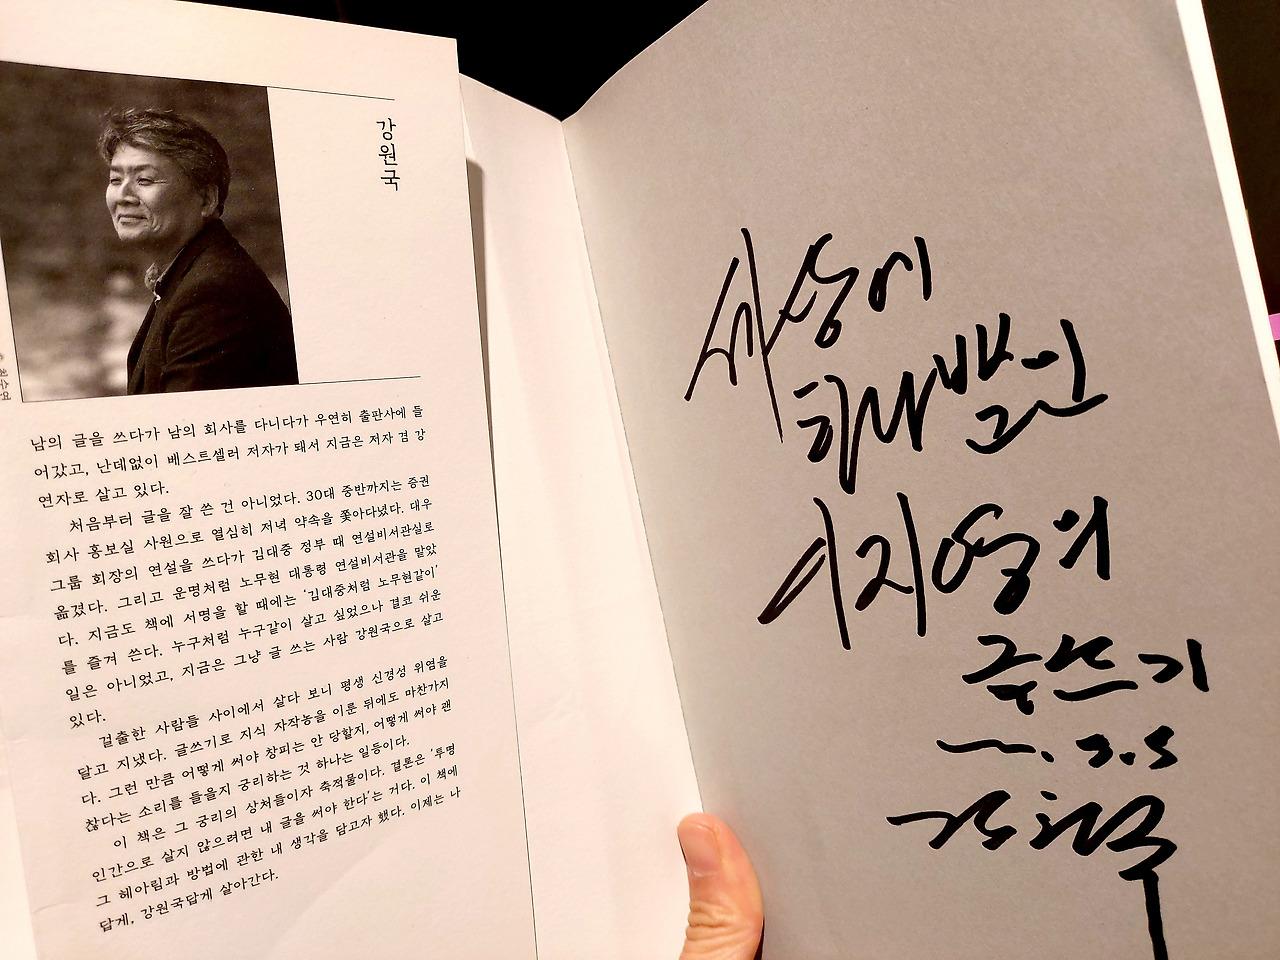 강원국
남의 글을 쓰다가 남의 회사를 다니다가 우연히 출판사에 들
어갔고, 난데없이 베스트셀러 저자가 돼서 지금은 저자 겸 강
연자로 살고 있다.
처음부터 글을 잘 쓴 건 아니었다. 30대 중반까지는 증권
회사 홍보실 사원으로 열심히 저녁 약속을 쫓아다녔다. 대우
그룹 회장의 연설을 쓰다가 김대중 정부 때 연설비서관실로
옮겼다. 그리고 운명처럼 노무현 대통령 연설비서관을 맡았
다. 지금도 책에 서명을 할 때에는 ‘김대중처럼 노무현같이’
를 즐겨 쓴다. 누구처럼 누구같이 살고 싶었으나 결코 쉬운
일은 아니었고, 지금은 그냥 글 쓰는 사람 강원국으로 살고
있다.
걸출한 사람들 사이에서 살다 보니 평생 신경성 위염을
달고 지냈다. 글쓰기로 지식 자작농을 이룬 뒤에도 마찬가지
다. 그런 만큼 어떻게 써야 창피는 안 당할지, 어떻게 써야 괜
찮다는 소리를 들을지 궁리하는 것 하나는 일등이다.
이 책은 그 궁리의 상처들이자 축적물이다. 결론은 ‘투명
인간으로 살지 않으려면 내 글을 써야 한다’는 거다. 이 책에
그 헤아림과 방법에 관한 내 생각을 담고자 했다. 이제는 나
답게, 강원국답게 살아간다.
세상에
하나밖인
이지영의
글쓰기
강원국